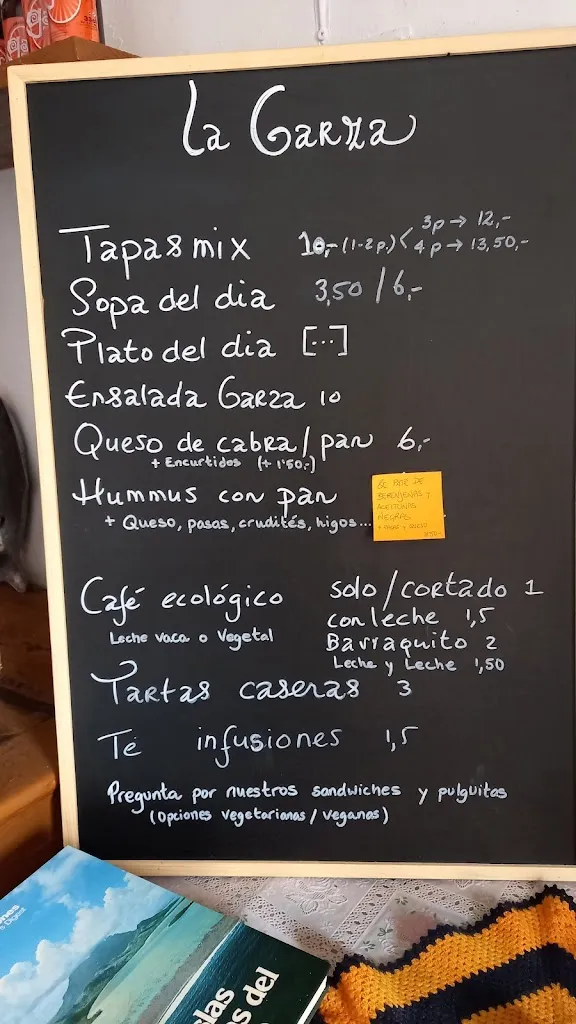 La Garza
Tapas mix 10,- (1-2p.) < 3p → 12,-
4p → 13,50,-
Sopa del dia 3,50 / 6,-
Plato del dia [...]
Ensalada Garza 10
Queso de cabra / pan 6,-
+ Encurtidos (+ 1'50,-)
Hummus con pan
+ Queso, pasas, crudités, higos...
BERENJENAS Y
ACEITUNAS
NEGRAS
Café ecológico solo / cortado 1
Leche vaca o vegetal con leche 1,5
Barraquito 2
Leche y Leche 1,50
Tartas caseras 3
Té infusiones 1,5
Pregunta por nuestros sandwiches y pulguitas
(opciones vegetarianas / veganas)